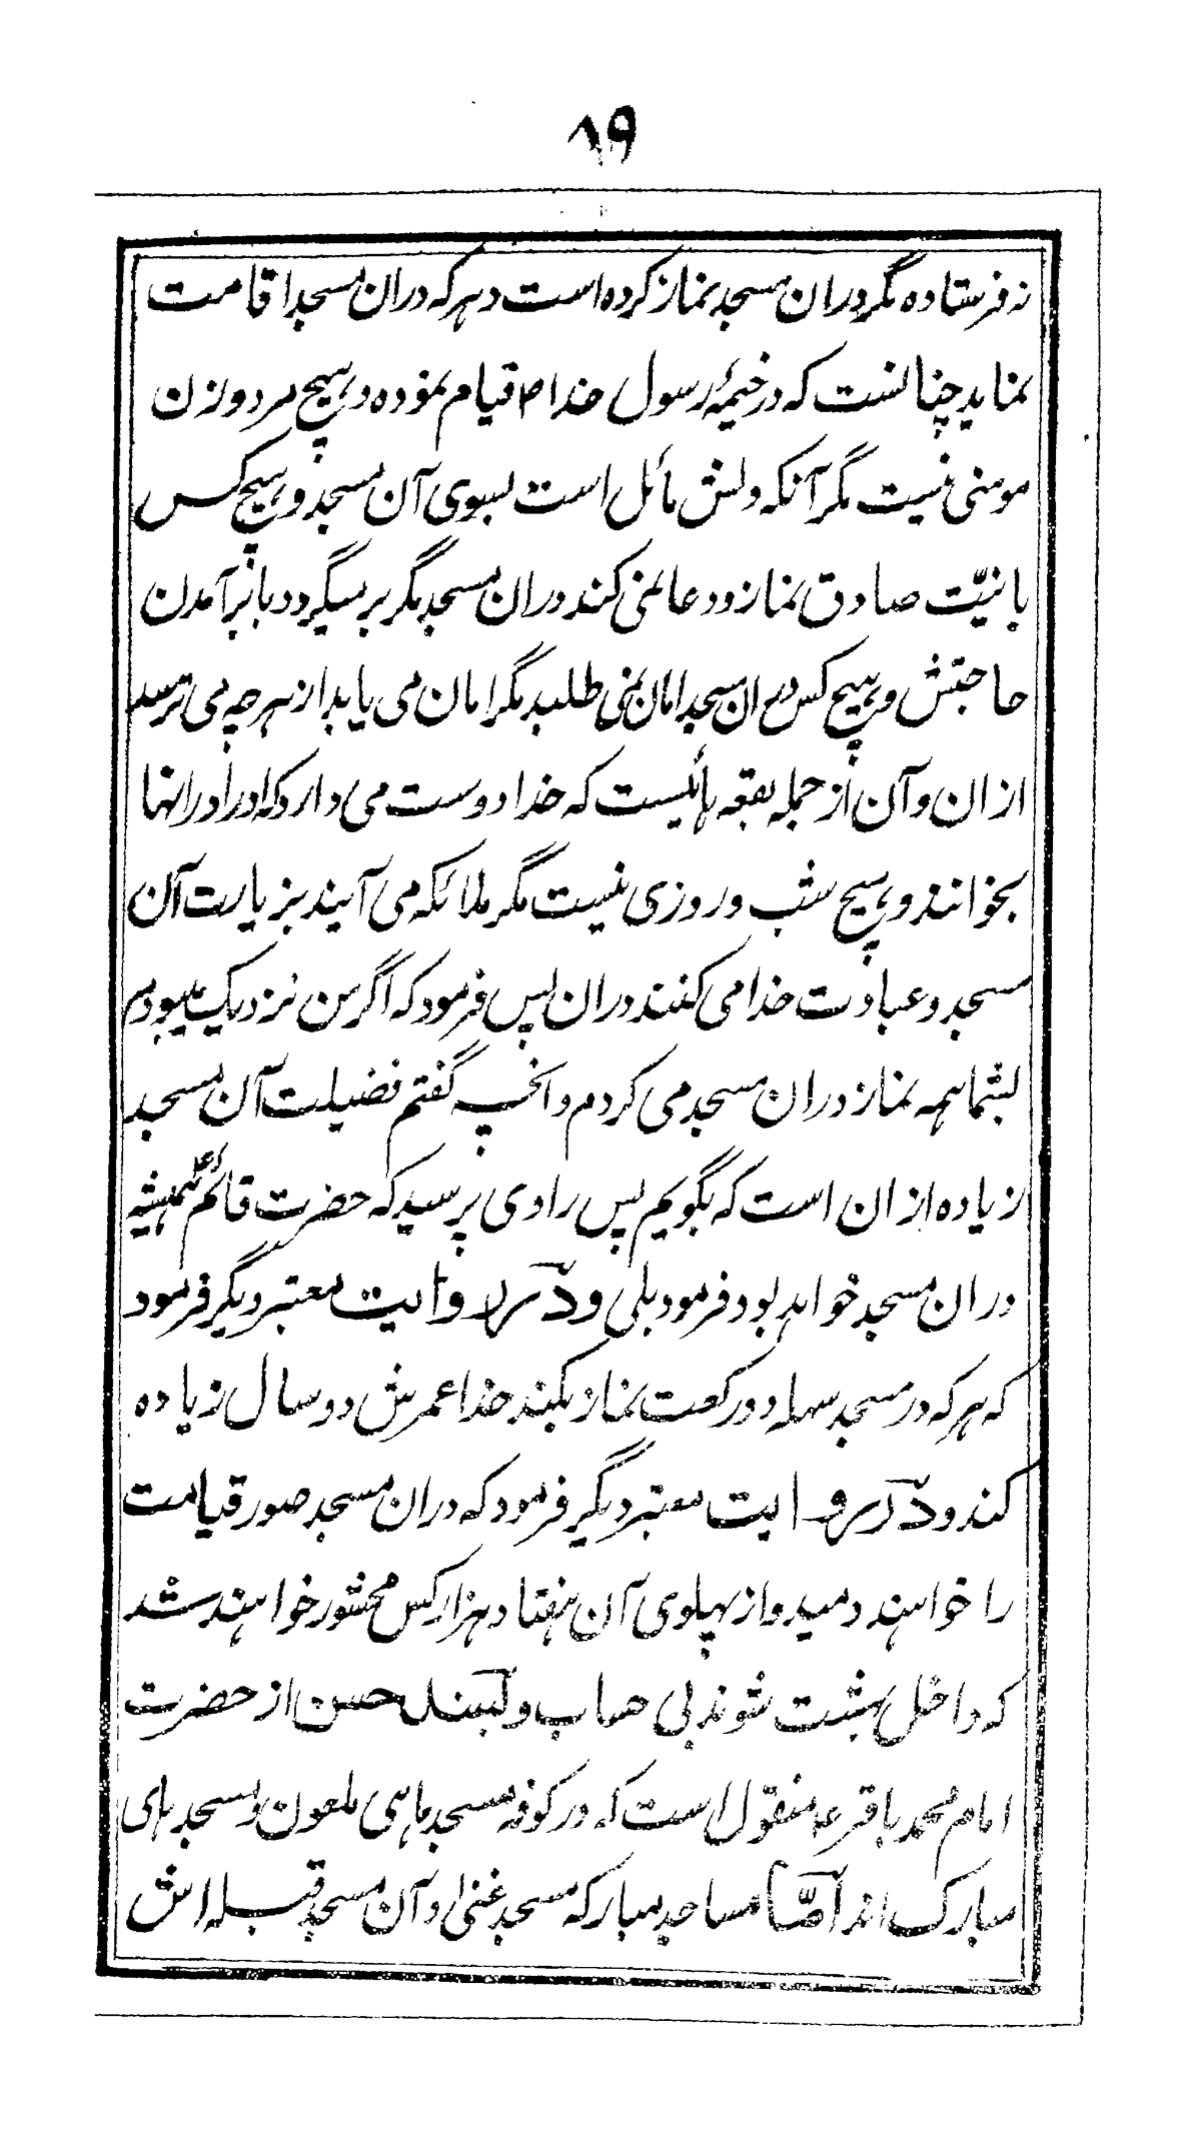 ۸۹
نه فرستاده مگر دران مسجد نماز کرده است و هر که دران مسجد اقامت
نماید چنانست که در خیمۀ رسول خدا ص قیام نموده و هیچ مرد و زن
مومنی نیست مگر آنکه دلش مائل است بسوی آن مسجد و هیچ کس
با نیّت صادق نماز و دعا نمی کند دران مسجد مگر بر میگردد با بر آمدن
حاجتش و هیچ کس دران مسجد امان نمی طلبد مگر امان می یابد از هر چه می ترسد
از ان و آن از جمله بقعه هائیست که خدا دوست می دارد که او را درانها
بخوانند و هیچ شب و روزی نیست مگر ملائکه می آیند بزیارت آن
مسجد و عبادت خدا می کنند دران پس فرمود که اگر من نزدیک میبودم
بشما همه نماز دران مسجد می کردم و انچه گفتم فضیلت آن مسجد
زیاده از ان است که بگویم پس راوی پرسید که حضرت قائم ع همیشه
دران مسجد خواهد بود فرمود بلی و در روایت معتبر دیگر فرمود
که هر که در مسجد سهله دو رکعت نماز بکند خدا عمرش دو سال زیاده
کند و در روایت معتبر دیگر فرمود که دران مسجد صور قیامت
را خواهند دمید و از پهلوی آن هفتاد هزار کس محشور خواهند شد
که داخل بهشت شوند بی حساب و بسند حسن از حضرت
امام محمد باقر ع منقول است که در کوفه مسجد های ملعون و مسجد های
مبارک اند امّا مساجد مبارکه مسجد غنی و آن مسجد قبله اش